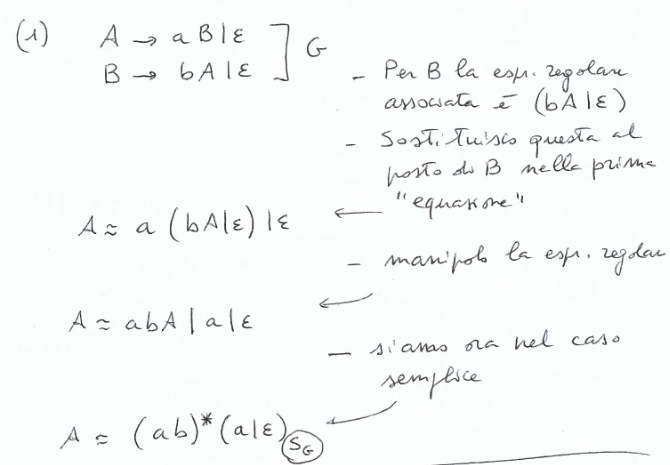 (1) A → aB|ε
B → bA|ε ] G
- Per B la espr. regolare
associata è (bA|ε)
- Sostituisco questa al
posto di B nella prima
"equazione"
A ≈ a (bA|ε) |ε ←
- manipolo la espr. regolare
←
A ≈ abA | a | ε
- siamo ora nel caso
semplice
←
A ≈ (ab)* (a|ε) S_G